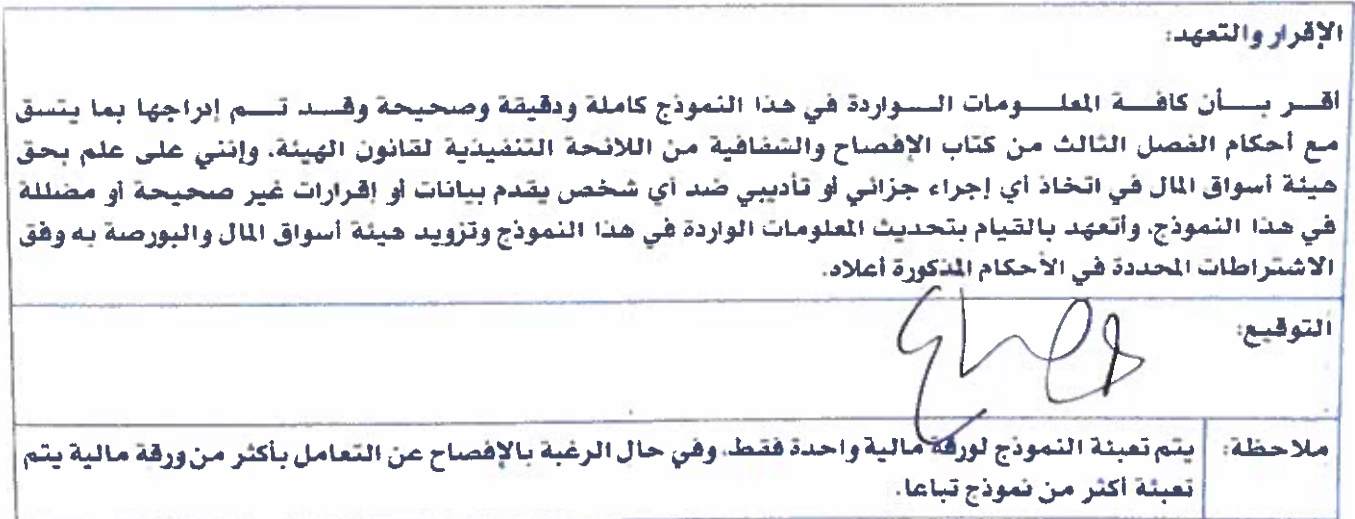 الإقرار والتعهد:
أقـــر بـــــأن كافـــة المعلــــومات الــــواردة في هذا النموذج كاملة ودقيقة وصحيحة وقـــد تـــم إدراجها بما يتسق
مع أحكام الفصل الثالث من كتاب الإفصاح والشفافية من اللائحة التنفيذية لقانون الهيئة، وإنني على علم بحق
هيئة أسواق المال في اتخاذ أي إجراء جزائي أو تأديبي ضد أي شخص يقدم بيانات أو إقرارات غير صحيحة أو مضللة
في هذا النموذج، وأتعهد بالقيام بتحديث المعلومات الواردة في هذا النموذج وتزويد هيئة أسواق المال والبورصة به وفق
الاشتراطات المحددة في الأحكام المذكورة أعلاه.
التوقيع:
ملاحظة: يتم تعبئة النموذج لورقة مالية واحدة فقط، وفي حال الرغبة بالإفصاح عن التعامل بأكثر من ورقة مالية يتم
تعبئة أكثر من نموذج تباعا.